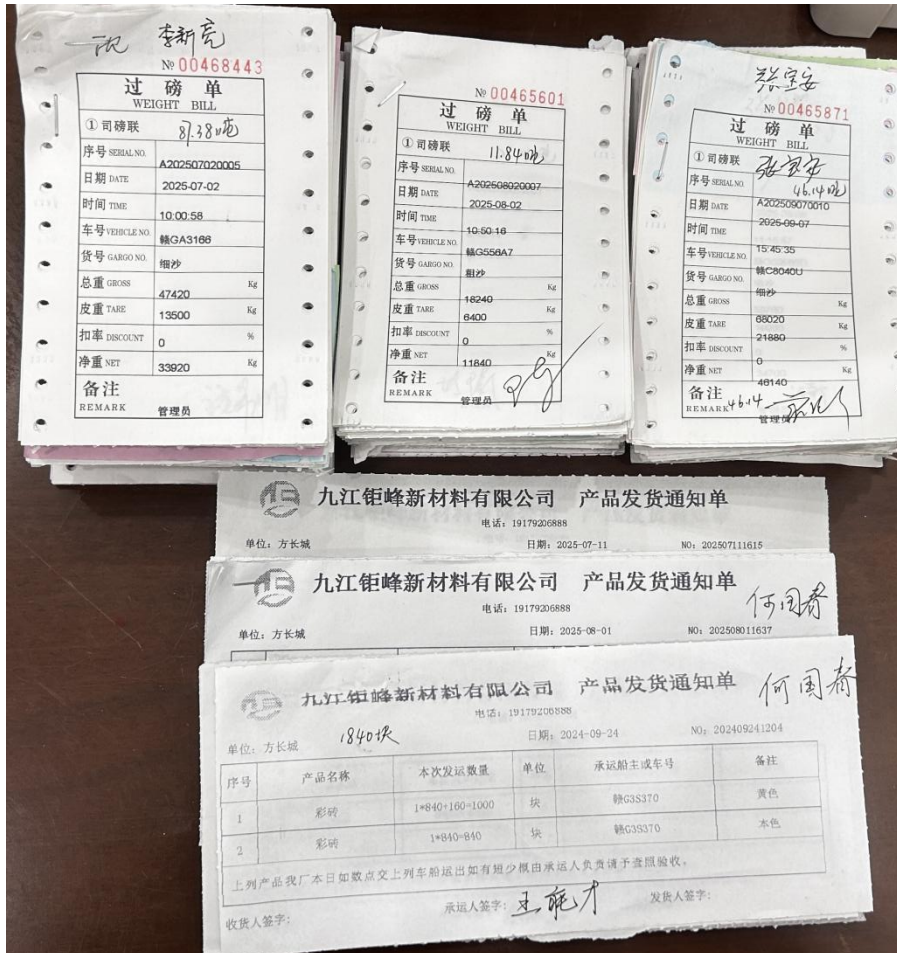 李新亮
№ 00468443
过磅单
WEIGHT BILL
①司磅联 87.38吨
序号 SERIAL NO. A202507020005
日期 DATE 2025-07-02
时间 TIME 10:00:58
车号 VEHICLE NO. 赣GA3166
货号 GARGO NO. 细沙
总重 GROSS 47420 Kg
皮重 TARE 13500 Kg
扣率 DISCOUNT 0 %
净重 NET 33920 Kg
备注
REMARK 管理员
№ 00465601
过磅单
WEIGHT BILL
①司磅联 11.84吨
序号 SERIAL NO. A202508020007
日期 DATE 2025-08-02
时间 TIME 10:50:16
车号 VEHICLE NO. 赣G556A7
货号 GARGO NO. 粗沙
总重 GROSS 18240 Kg
皮重 TARE 6400 Kg
扣率 DISCOUNT 0 %
净重 NET 11840 Kg
备注
REMARK 管理员
张宝安
№ 00465871
过磅单
WEIGHT BILL
①司磅联 张宝安
46.14吨
序号 SERIAL NO. A202509070010
日期 DATE 2025-09-07
时间 TIME 15:45:35
车号 VEHICLE NO. 赣C8040U
货号 GARGO NO. 细沙
总重 GROSS 68020 Kg
皮重 TARE 21880 Kg
扣率 DISCOUNT 0 %
净重 NET 46140 Kg
备注
REMARK 46.14 管理员
九江钜峰新材料有限公司 产品发货通知单
电话：19179206888
单位：方长城 日期：2025-07-11 NO：202507111615
九江钜峰新材料有限公司 产品发货通知单
何国春
电话：19179206888
单位：方长城 日期：2025-08-01 NO：202508011637
九江钜峰新材料有限公司 产品发货通知单 何国春
电话：19179206888
单位：方长城 1840块 日期：2024-09-24 NO：202409241204
序号 产品名称 本次发运数量 单位 承运船主或车号 备注
1 彩砖 1*840+160=1000 块 赣G3S370 黄色
2 彩砖 1*840=840 块 赣G3S370 本色
上列产品我厂本日如数点交上列车船运出如有短少概由承运人负责请予查照验收。
收货人签字： 承运人签字： 发货人签字：